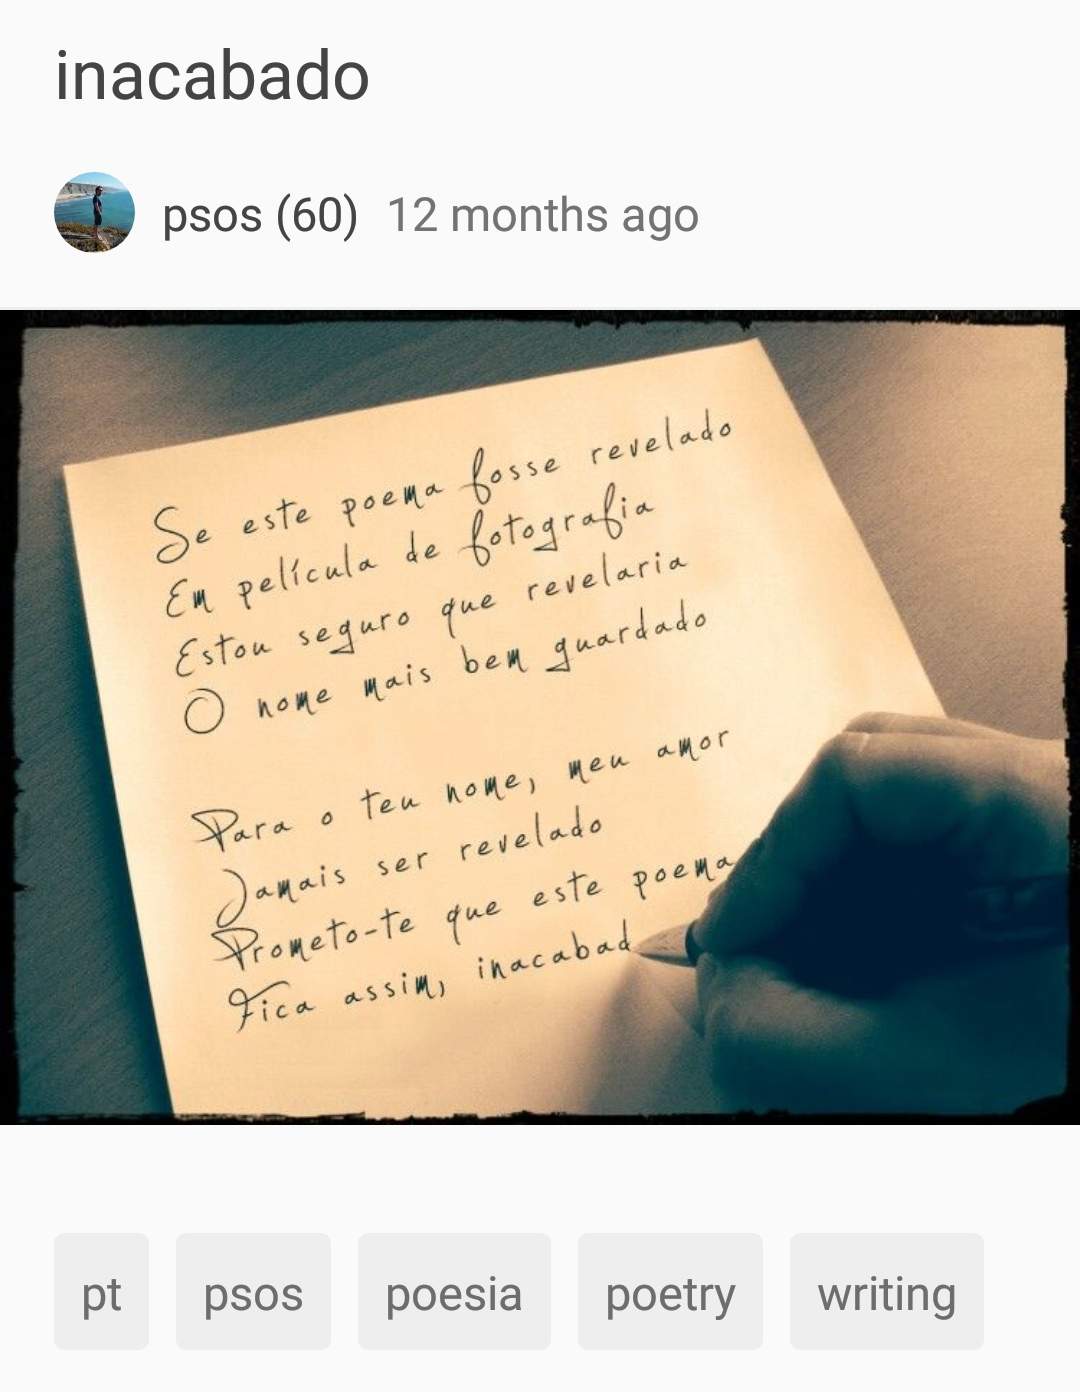 inacabado
psos (60) 12 months ago
Se este poema fosse revelado
Em película de fotografia
Estou seguro que revelaria
O nome mais bem guardado
Para o teu nome, meu amor
Jamais ser revelado
Prometo-te que este poema
Fica assim, inacabad
pt psos poesia poetry writing